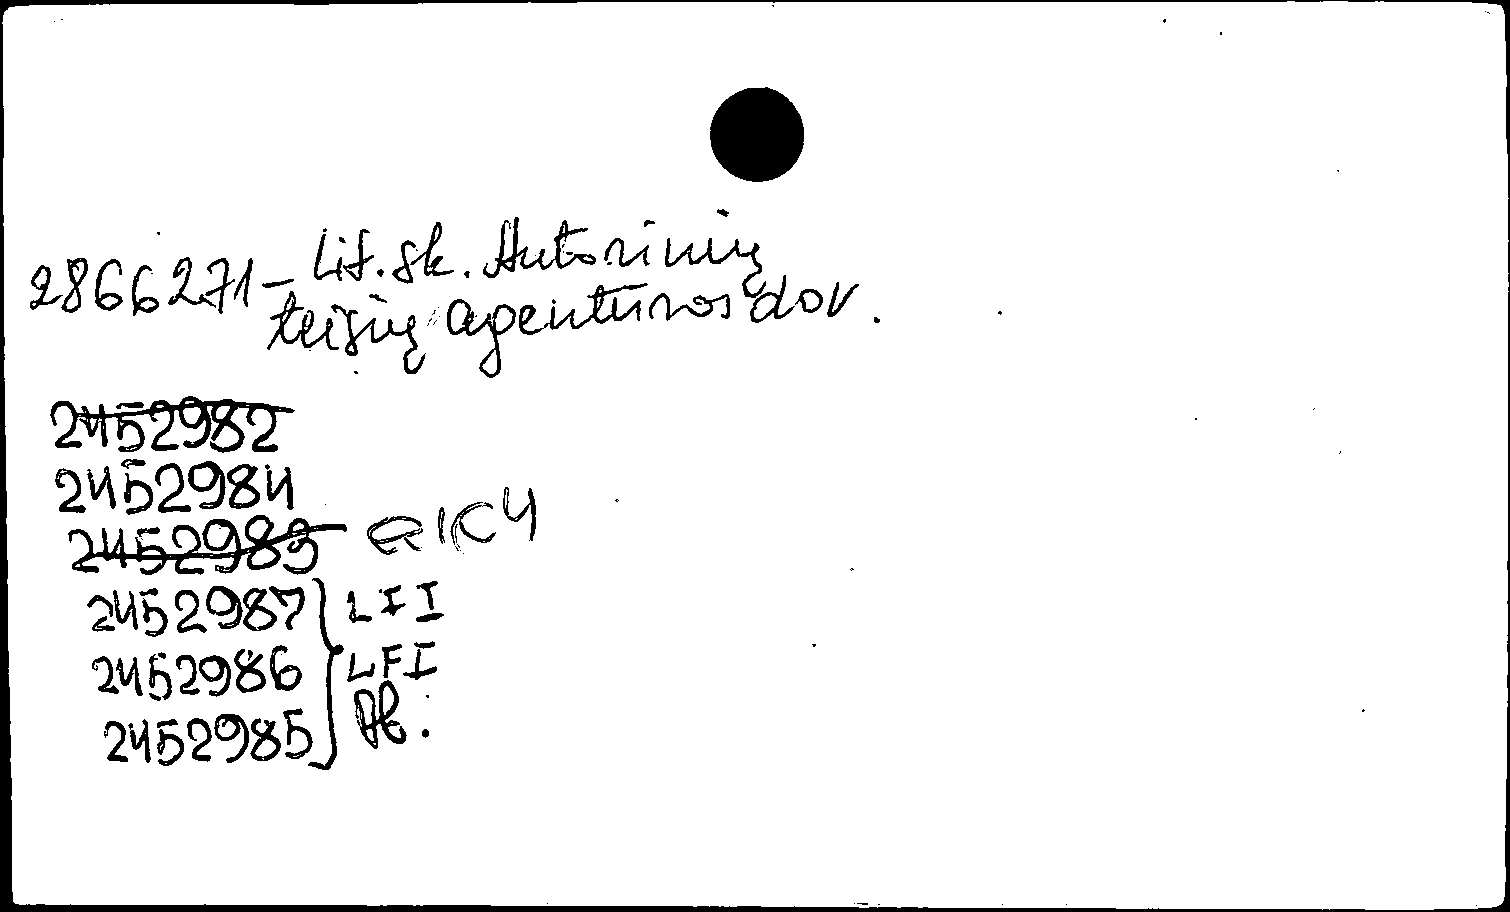 2866271 - Lit. sk. Autorinių
teisių agentūros dov.
2452982
2452984
2452983
2452987 LFI
2452986 LFI
2452985 Ab.